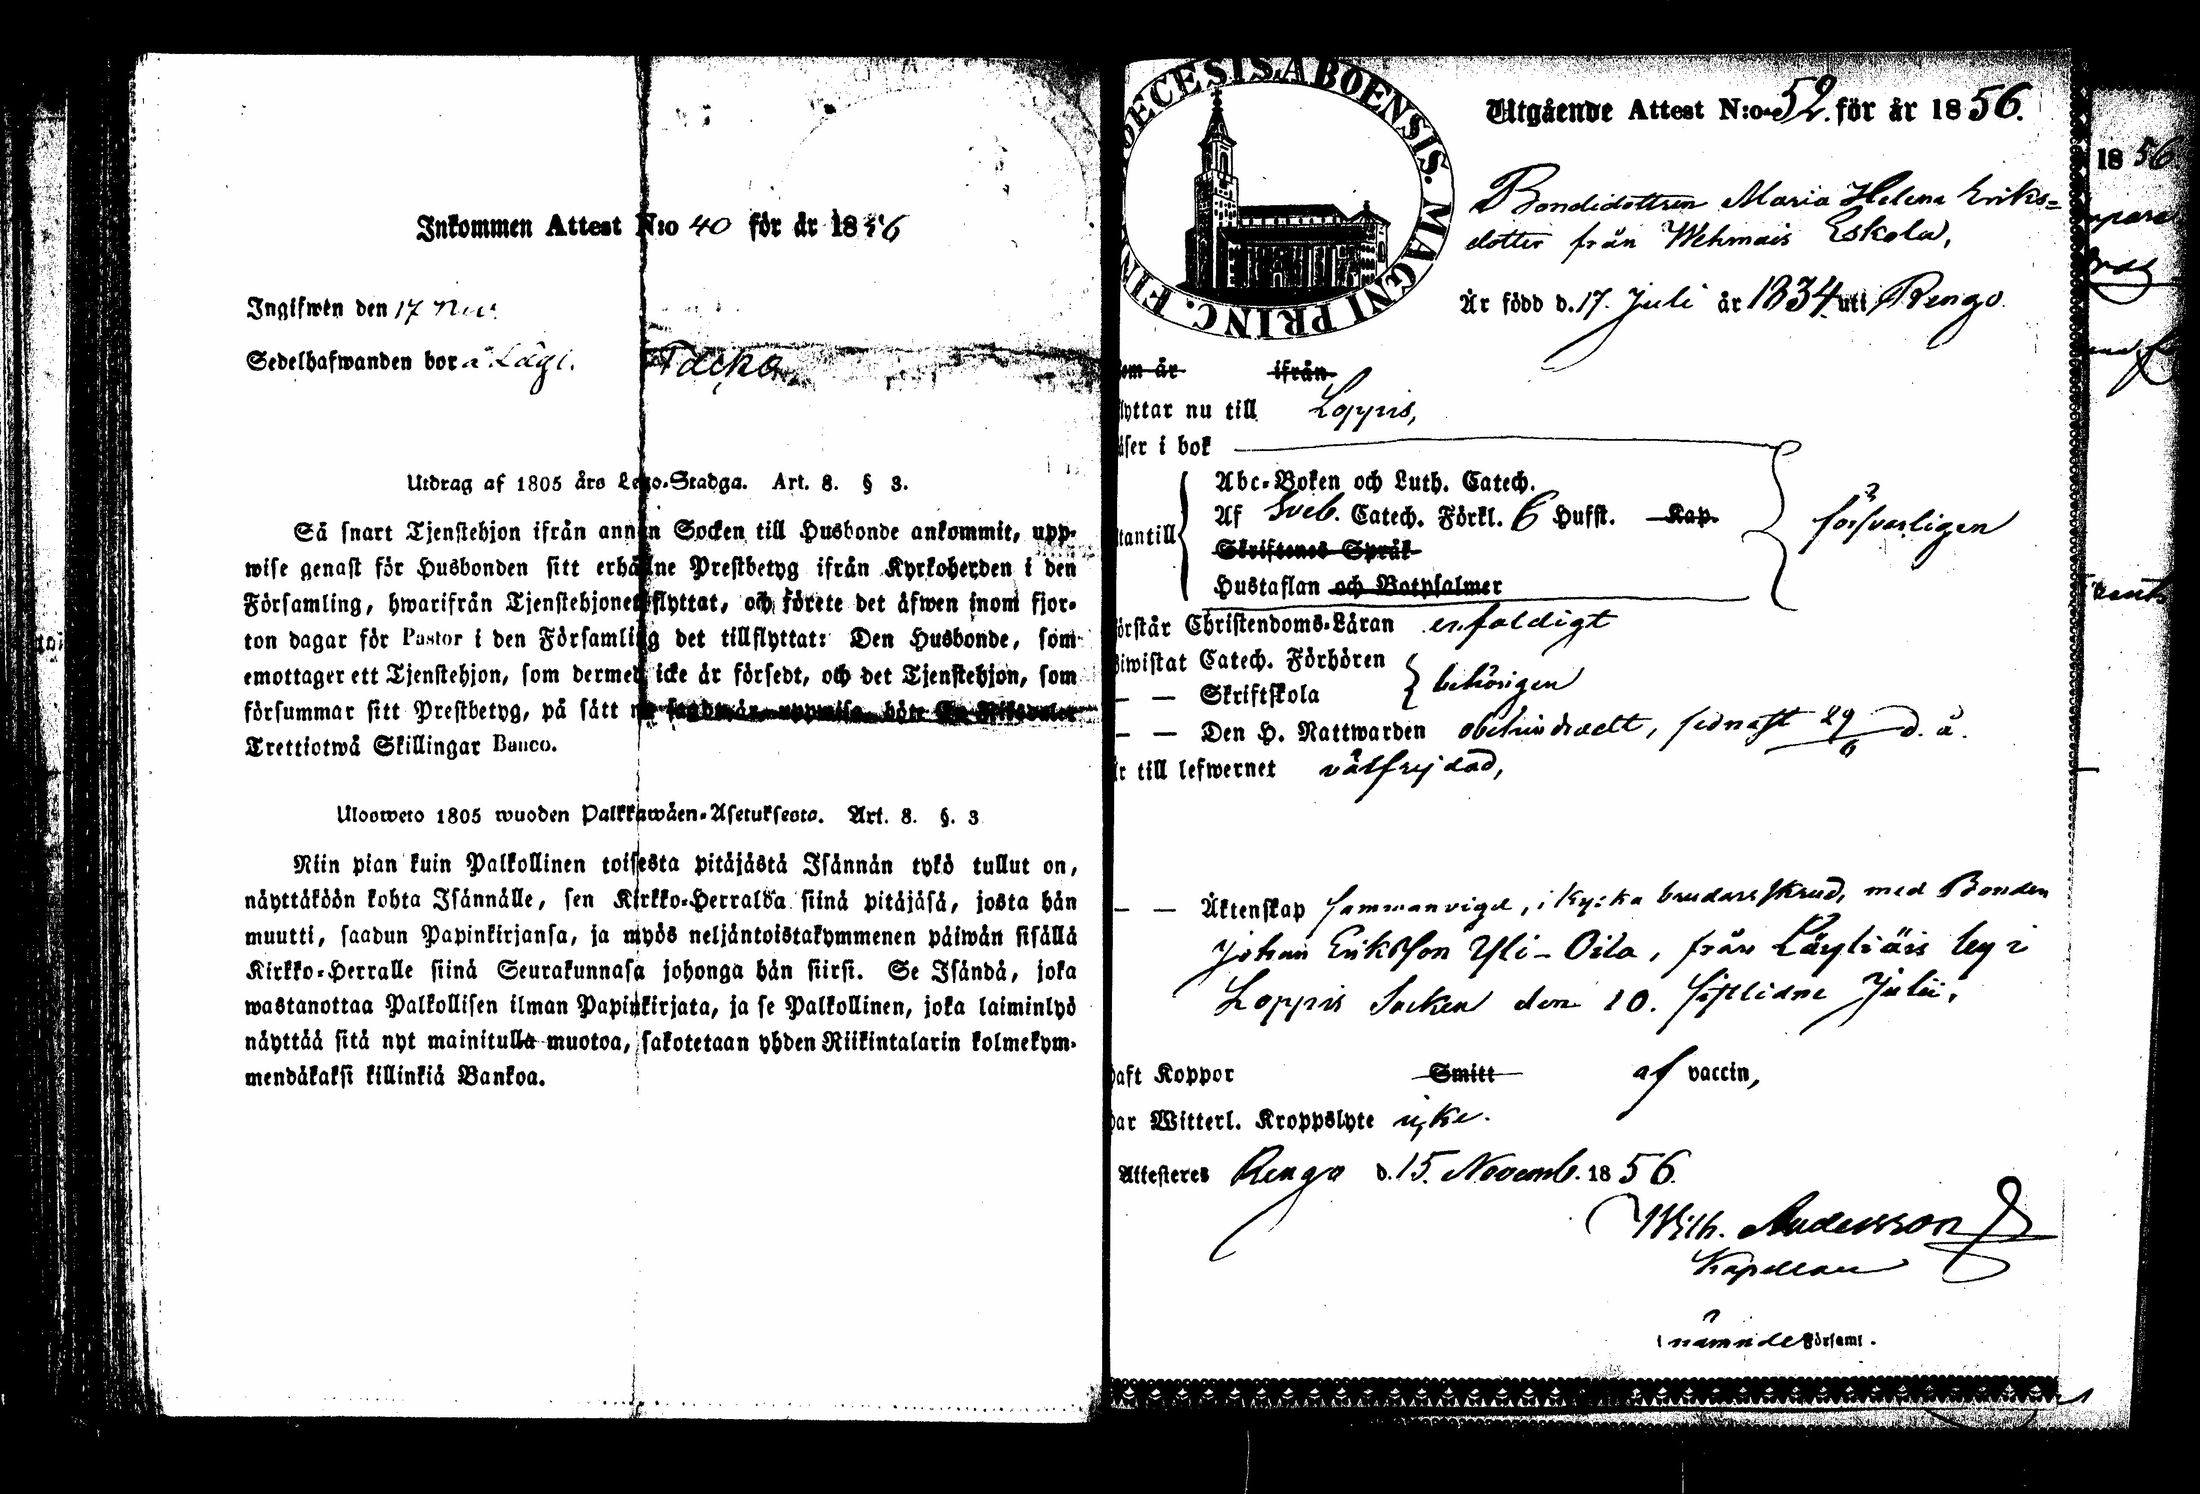 Inkommen Attest N:o 40 för år 1856
Ingifwen den 17 Nov.
Sedelhafwanden bor
Utdrag af 1805 års Lego-Stadga. Art. 8. § 3.
Så snart Tjenstehjon ifrån annan Socken till Husbonde ankommit, upp-
wise genast för Husbonden sitt erhållne Prestbetyg ifrån Kyrkoherden i den
Församling, hwarifrån Tjenstehjonet flyttat, och förete det äfwen inom fjor-
ton dagar för Pastor i den Församling det tillflyttat: Den Husbonde, som
emottager ett Tjenstehjon, som dermed icke är försedt, och det Tjenstehjon, som
försummar sitt Prestbetyg, på sätt nu sagdt är, uppwisa, böte En Riksdaler
Trettiotwå Skillingar Banco.
Ulosweto 1805 wuoden Palkkawäen-Asetuksesta. Art. 8. §. 3
Niin pian kuin Palkollinen toisesta pitäjästä Isännän tykö tullut on,
näyttäköön kohta Isännälle, sen Kirkko-Herralda siinä pitäjäsä, josta hän
muutti, saadun Papinkirjansa, ja myös neljäntoistakymmenen päiwän sisällä
Kirkko-Herralle siinä Seurakunnasa johonga hän siirsi. Se Isändä, joka
wastanottaa Palkollisen ilman Papinkirjata, ja se Palkollinen, joka laiminlyö
näyttää sitä nyt mainitulla muotoa, sakotetaan yhden Riikintalarin kolmekym-
mendäkaksi killinkiä Bankoa.
ECESIS ABOENSIS. MAGNI PRINC. FIN
Utgående Attest N:o 52. för år 1856.
Bondedottren Maria Helena Eriks=
dotter från Wehmais Eskola,
Är född d. 17. Juli år 1834 uti Rengo.
em är ifrån
lyttar nu till Loppis,
äser i bok
Abc-Boken och Luth. Catech.
Af Sveb. Catech. Förkl. 6 Hufst. Kap.
tantill
Skriftenes Språk
Hustaflan och Botpsalmer
försvarligen
örstår Christendoms-Läran enfaldigt
iwistat Catech. Förhören
— — Skriftskola
behörigen
— — Den H. Nattwarden obehindradt, sednast 29/6 d. å.
r till lefwernet välfrejdad,
— — Äktenskap sammanvigd, i kyrka brudareskrud, med Bonden
Johan Eriksson Yli-Oila, från Läyliäis by i
Loppis Socken den 10. sistlidne Julii,
haft Koppor Smitt af vaccin,
har Witterl. Kroppslyte icke.
Attesteres Rengo d. 15. Novemb. 1856.
Wilh. Andersson
Kapellan
i nämnde Församl.
1856